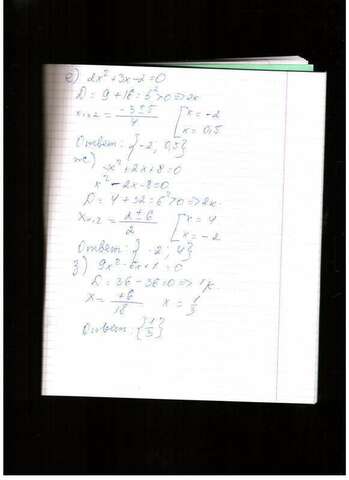 е) 2x²+3x-2=0
D = 9+16=5²>0=>2к
x₁,₂ = (-3±5)/4 [x = -2
[x = 0,5
Ответ: {-2; 0,5}
ж) -x²+2x+8=0
x²-2x-8=0
D = 4+32=6²>0=>2к.
x₁,₂ = (2±6)/2 [x = 4
[x = -2
Ответ: {-2; 4}
з) 9x²-6x+1=0
D = 36-36=0=> 1к.
x = +6/18 x = 1/3
Ответ: {1/3}